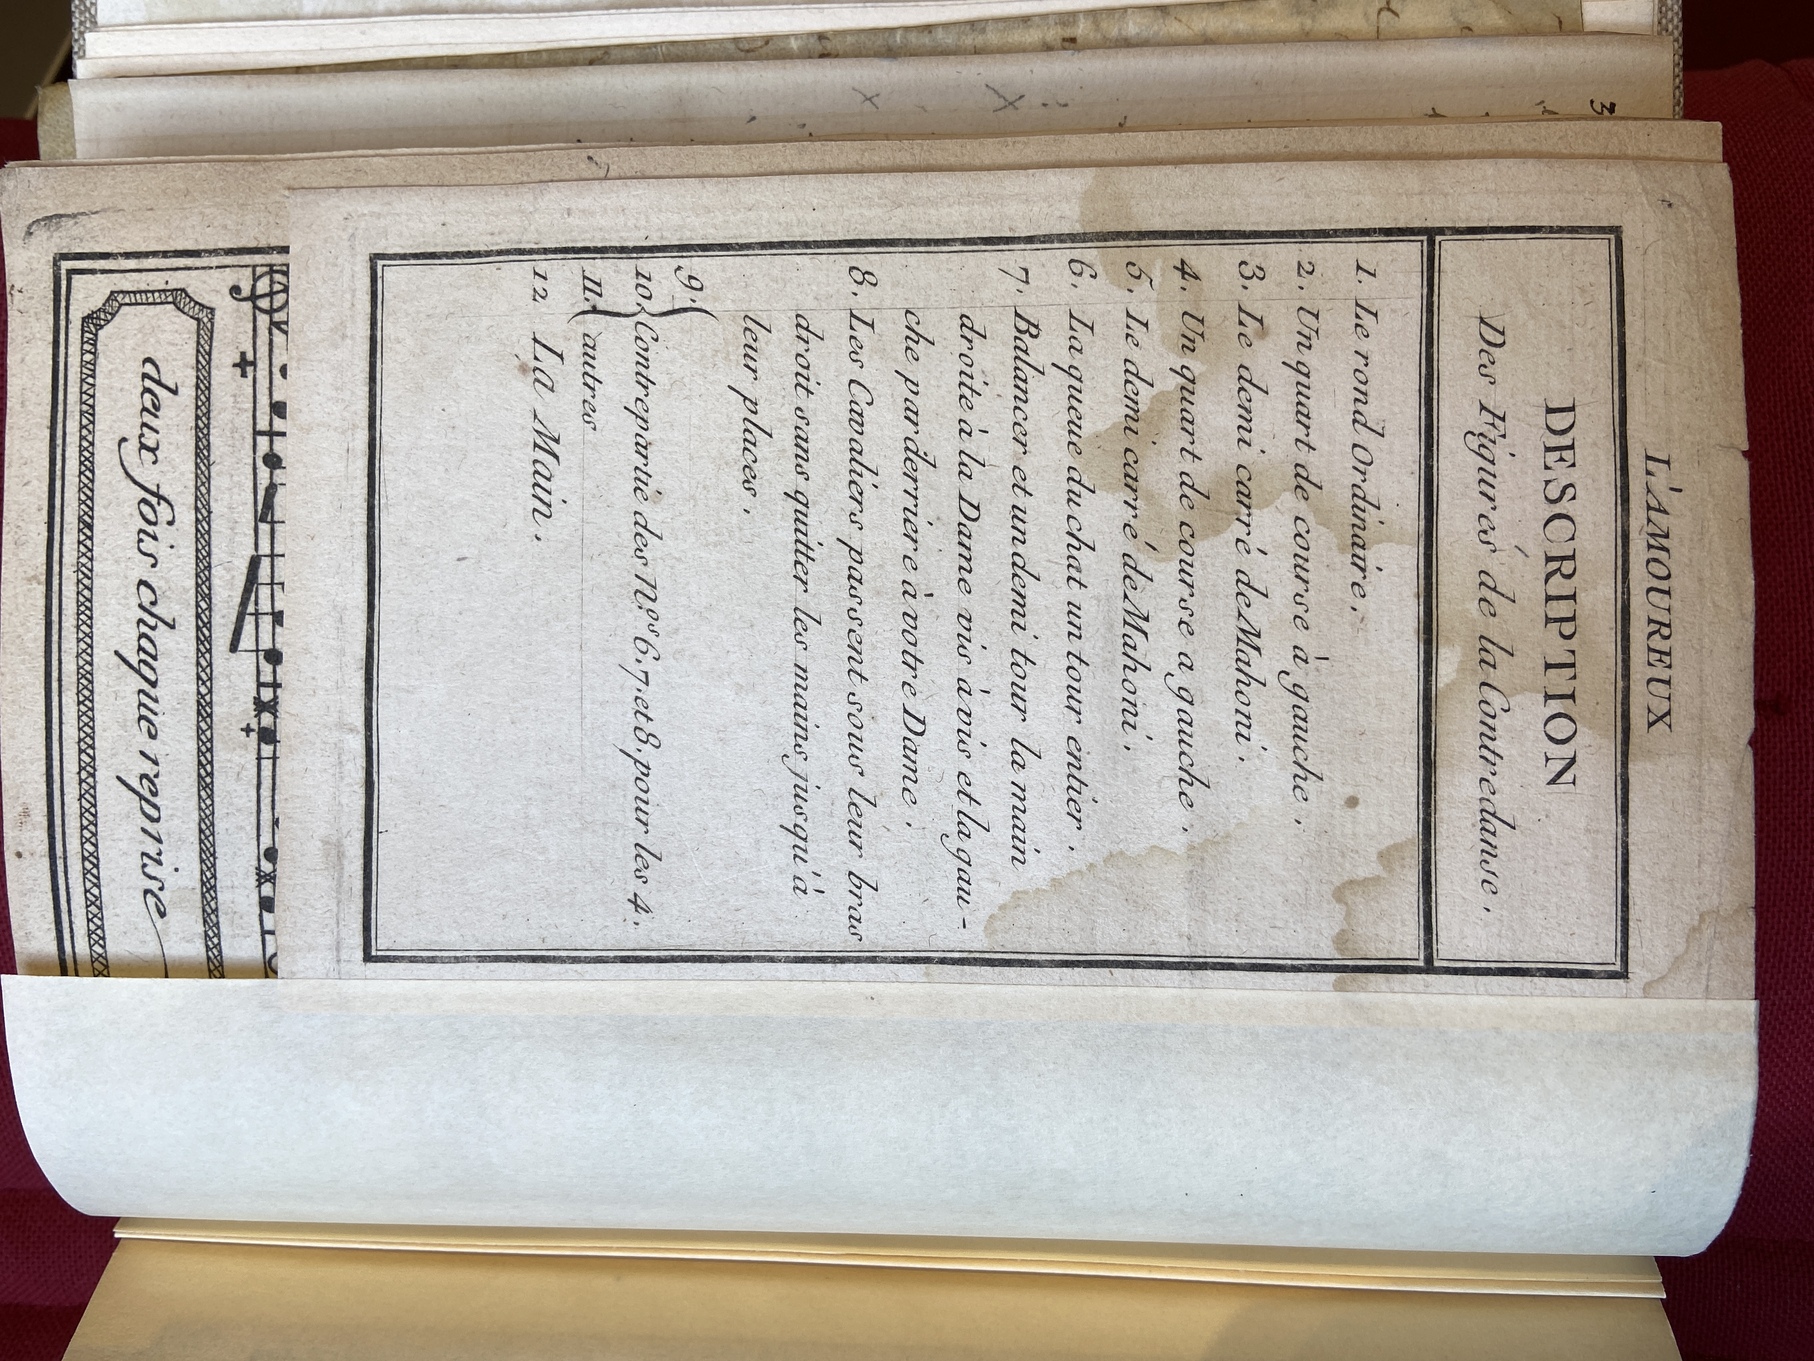 L'AMOUREUX
DESCRIPTION
Des Figurés de la Contredanse.
1. Le rond Ordinaire.
2. Un quart de course à gauche.
3. Le demi carré de Mahoni.
4. Un quart de course a gauche.
5. Le demi carré de Mahoni.
6. La queue du chat un tour entier.
7. Balancer et un demi tour la main
droite à la Dame vis à vis et la gau-
che par derriere à votre Dame.
8. Les Cavaliers passent sous leur bras
droit sans quitter les mains jusqu'à
leur places.
9.
10. Contrepartie des Nos 6. 7. et 8. pour les 4.
11. autres
12. La Main.
deux fois chaque reprise
3